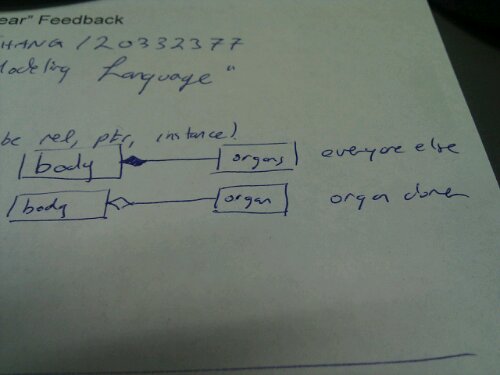 ear" Feedback
HANG / 20332377
Modeling Language"
be rel, ptr, instance)
body organs everyone else
body organ organ donor